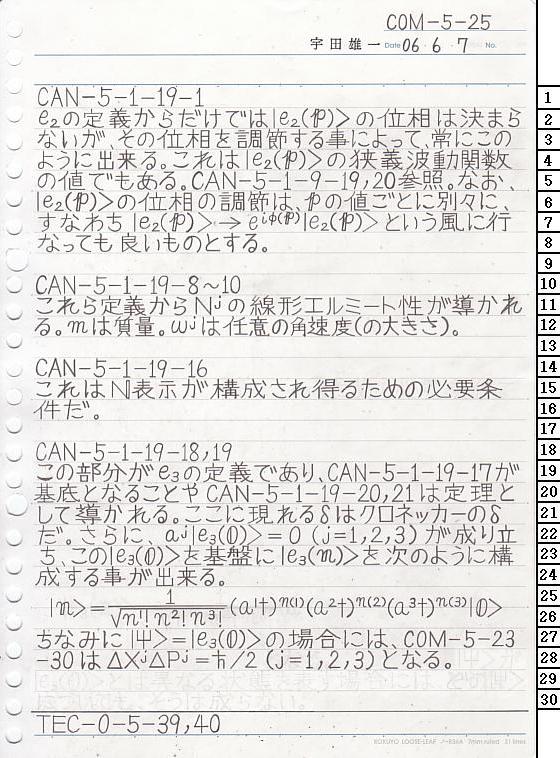 COM-5-25
宇田雄一 Date 06・6・7 No.
CAN-5-1-19-1
e₂の定義からだけでは|e₂(p)>の位相は決まら
ないが、その位相を調節する事によって、常にこの
ように出来る。これは|e₂(p)>の狭義波動関数
の値でもある。CAN-5-1-9-19,20参照。なお、
|e₂(p)>の位相の調節は、pの値ごとに別々に、
すなわち|e₂(p)>→e^{iφ(p)}|e₂(p)>という風に行
なっても良いものとする。
CAN-5-1-19-8~10
これら定義からNʲの線形エルミート性が導かれ
る。mは質量。ωʲは任意の角速度(の大きさ)。
CAN-5-1-19-16
これはN表示が構成され得るための必要条
件だ。
CAN-5-1-19-18,19
この部分がe₃の定義であり、CAN-5-1-19-17が
基底となることやCAN-5-1-19-20,21は定理と
して導かれる。ここに現れるδはクロネッカーのδ
だ。さらに、aʲ|e₃(0)>=0 (j=1,2,3) が成り立
ち、この|e₃(0)>を基盤に|e₃(n)>を次のように構
成する事が出来る。
|n>=1/√(n¹!n²!n³!) (a¹†)^{n(1)}(a²†)^{n(2)}(a³†)^{n(3)}|0>
ちなみに|Ψ>=|e₃(0)>の場合には、COM-5-23
-30はΔXʲΔPʲ=ℏ/2 (j=1,2,3)となる。
TEC-0-5-39,40
KOKUYO LOOSE-LEAF ノ-836A 7mm ruled 31 lines
1
2
3
4
5
6
7
8
9
10
11
12
13
14
15
16
17
18
19
20
21
22
23
24
25
26
27
28
29
30